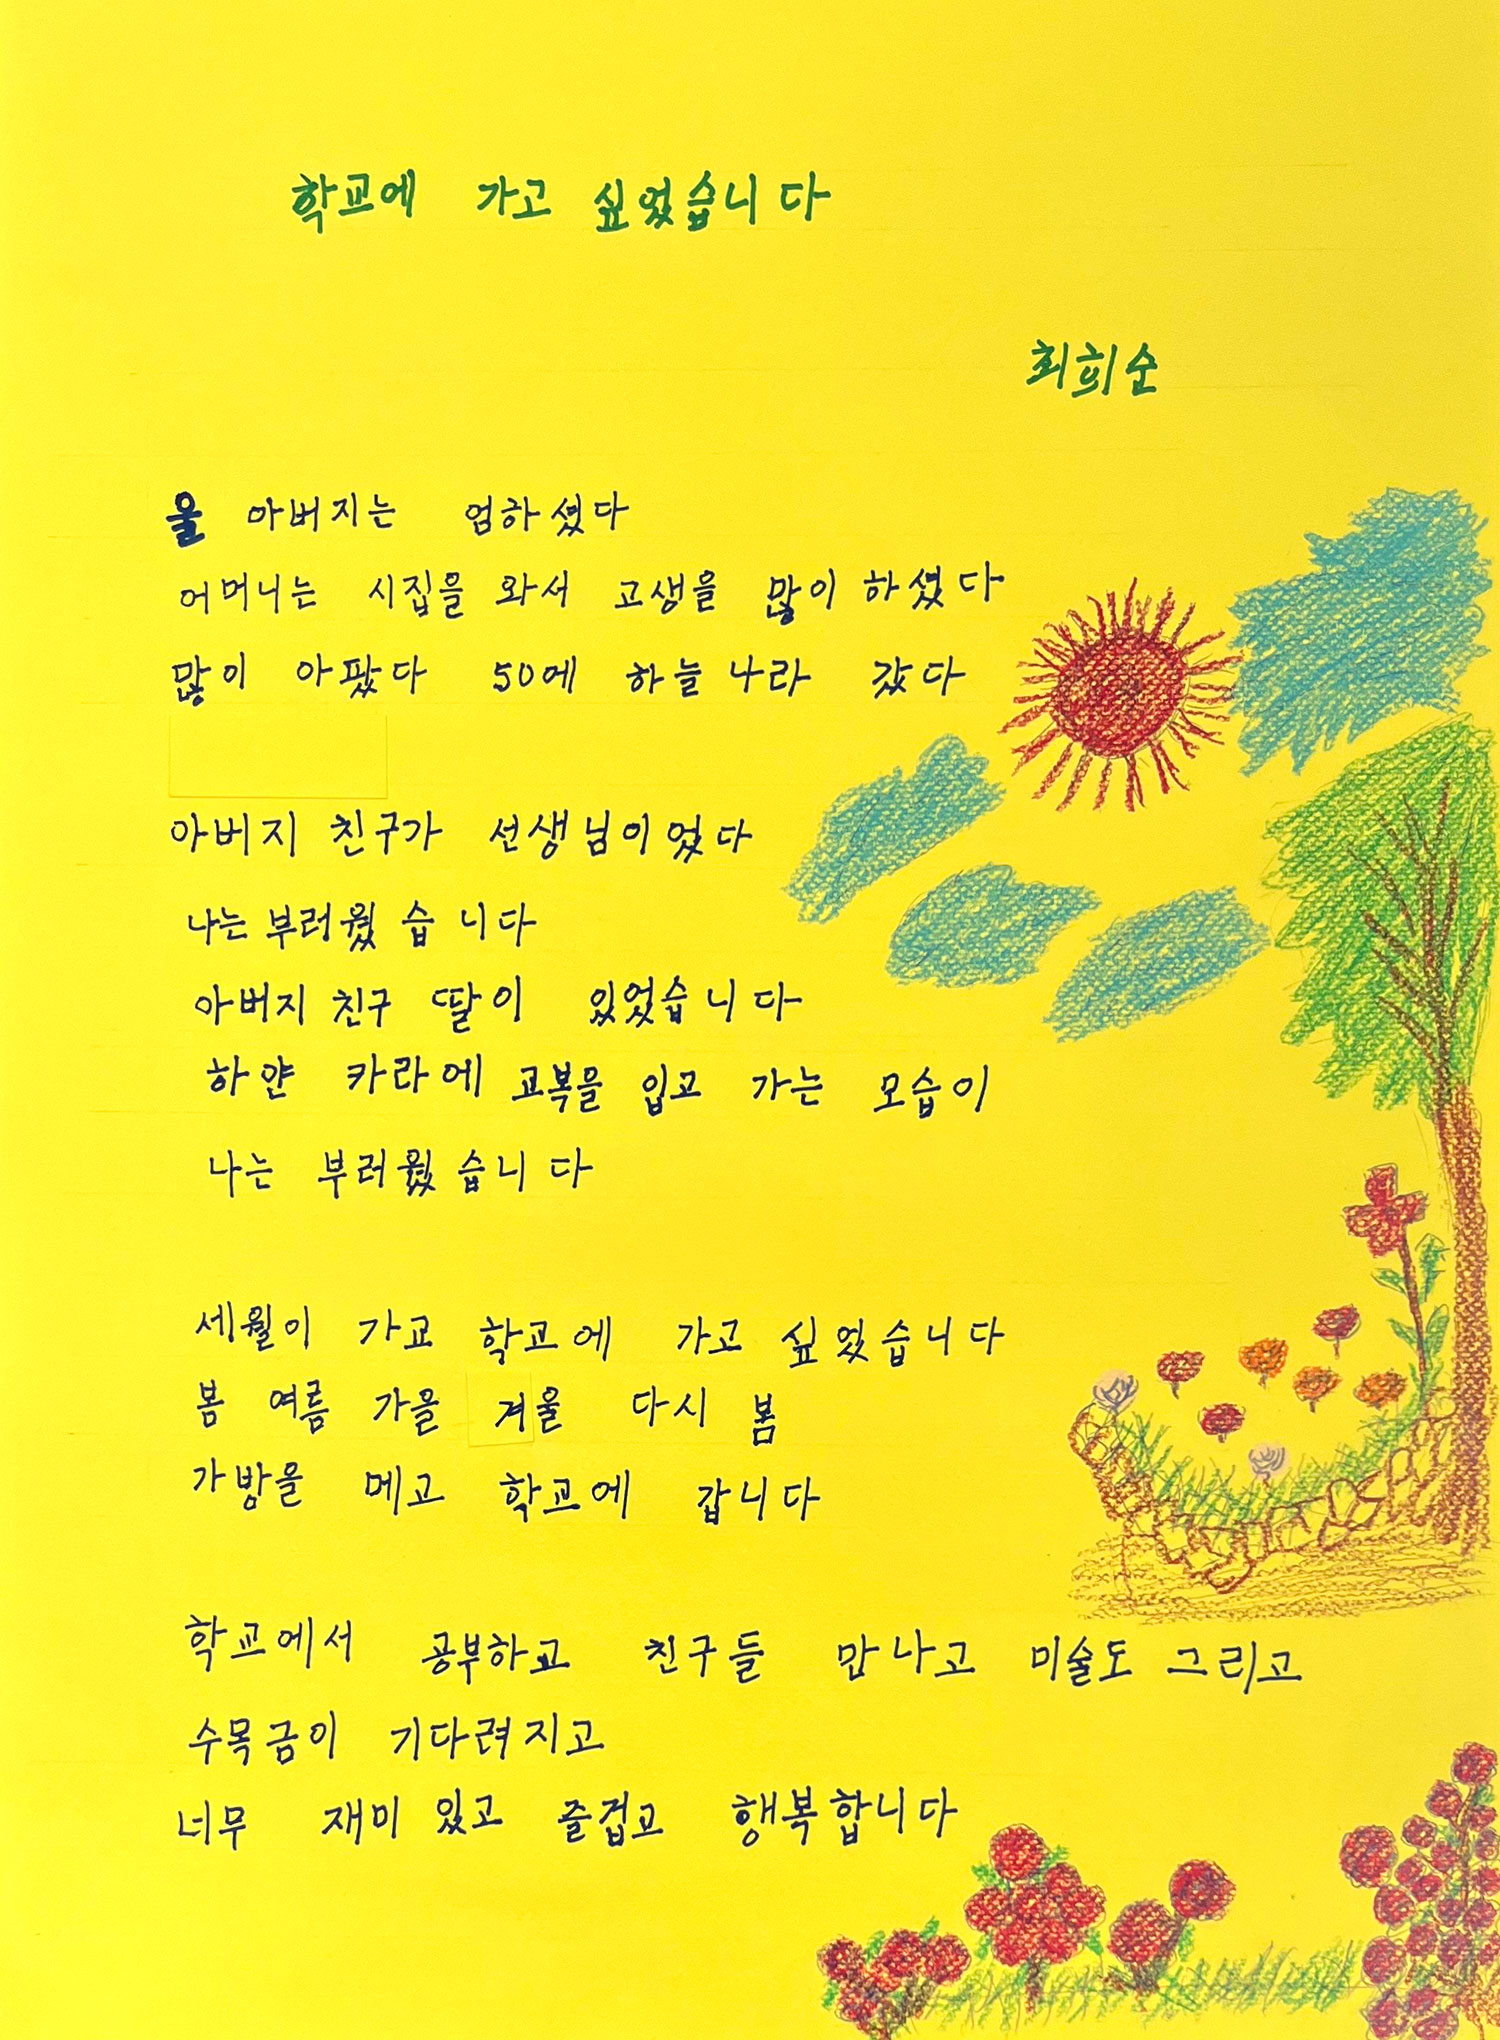 학교에 가고 싶었습니다
최희순
울 아버지는 엄하셨다
어머니는 시집을 와서 고생을 많이 하셨다
많이 아팠다 50에 하늘나라 갔다
아버지 친구가 선생님이었다
나는 부러웠습니다
아버지 친구 딸이 있었습니다
하얀 카라에 교복을 입고 가는 모습이
나는 부러웠습니다
세월이 가고 학교에 가고 싶었습니다
봄 여름 가을 겨울 다시 봄
가방을 메고 학교에 갑니다
학교에서 공부하고 친구들 만나고 미술도 그리고
수목금이 기다려지고
너무 재미있고 즐겁고 행복합니다